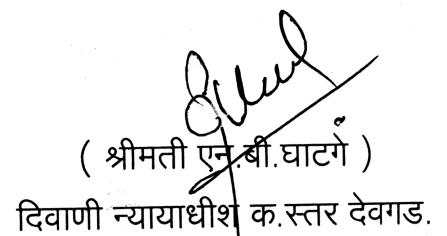 ( श्रीमती एन.बी.घाटगे )
दिवाणी न्यायाधीश क.स्तर देवगड.